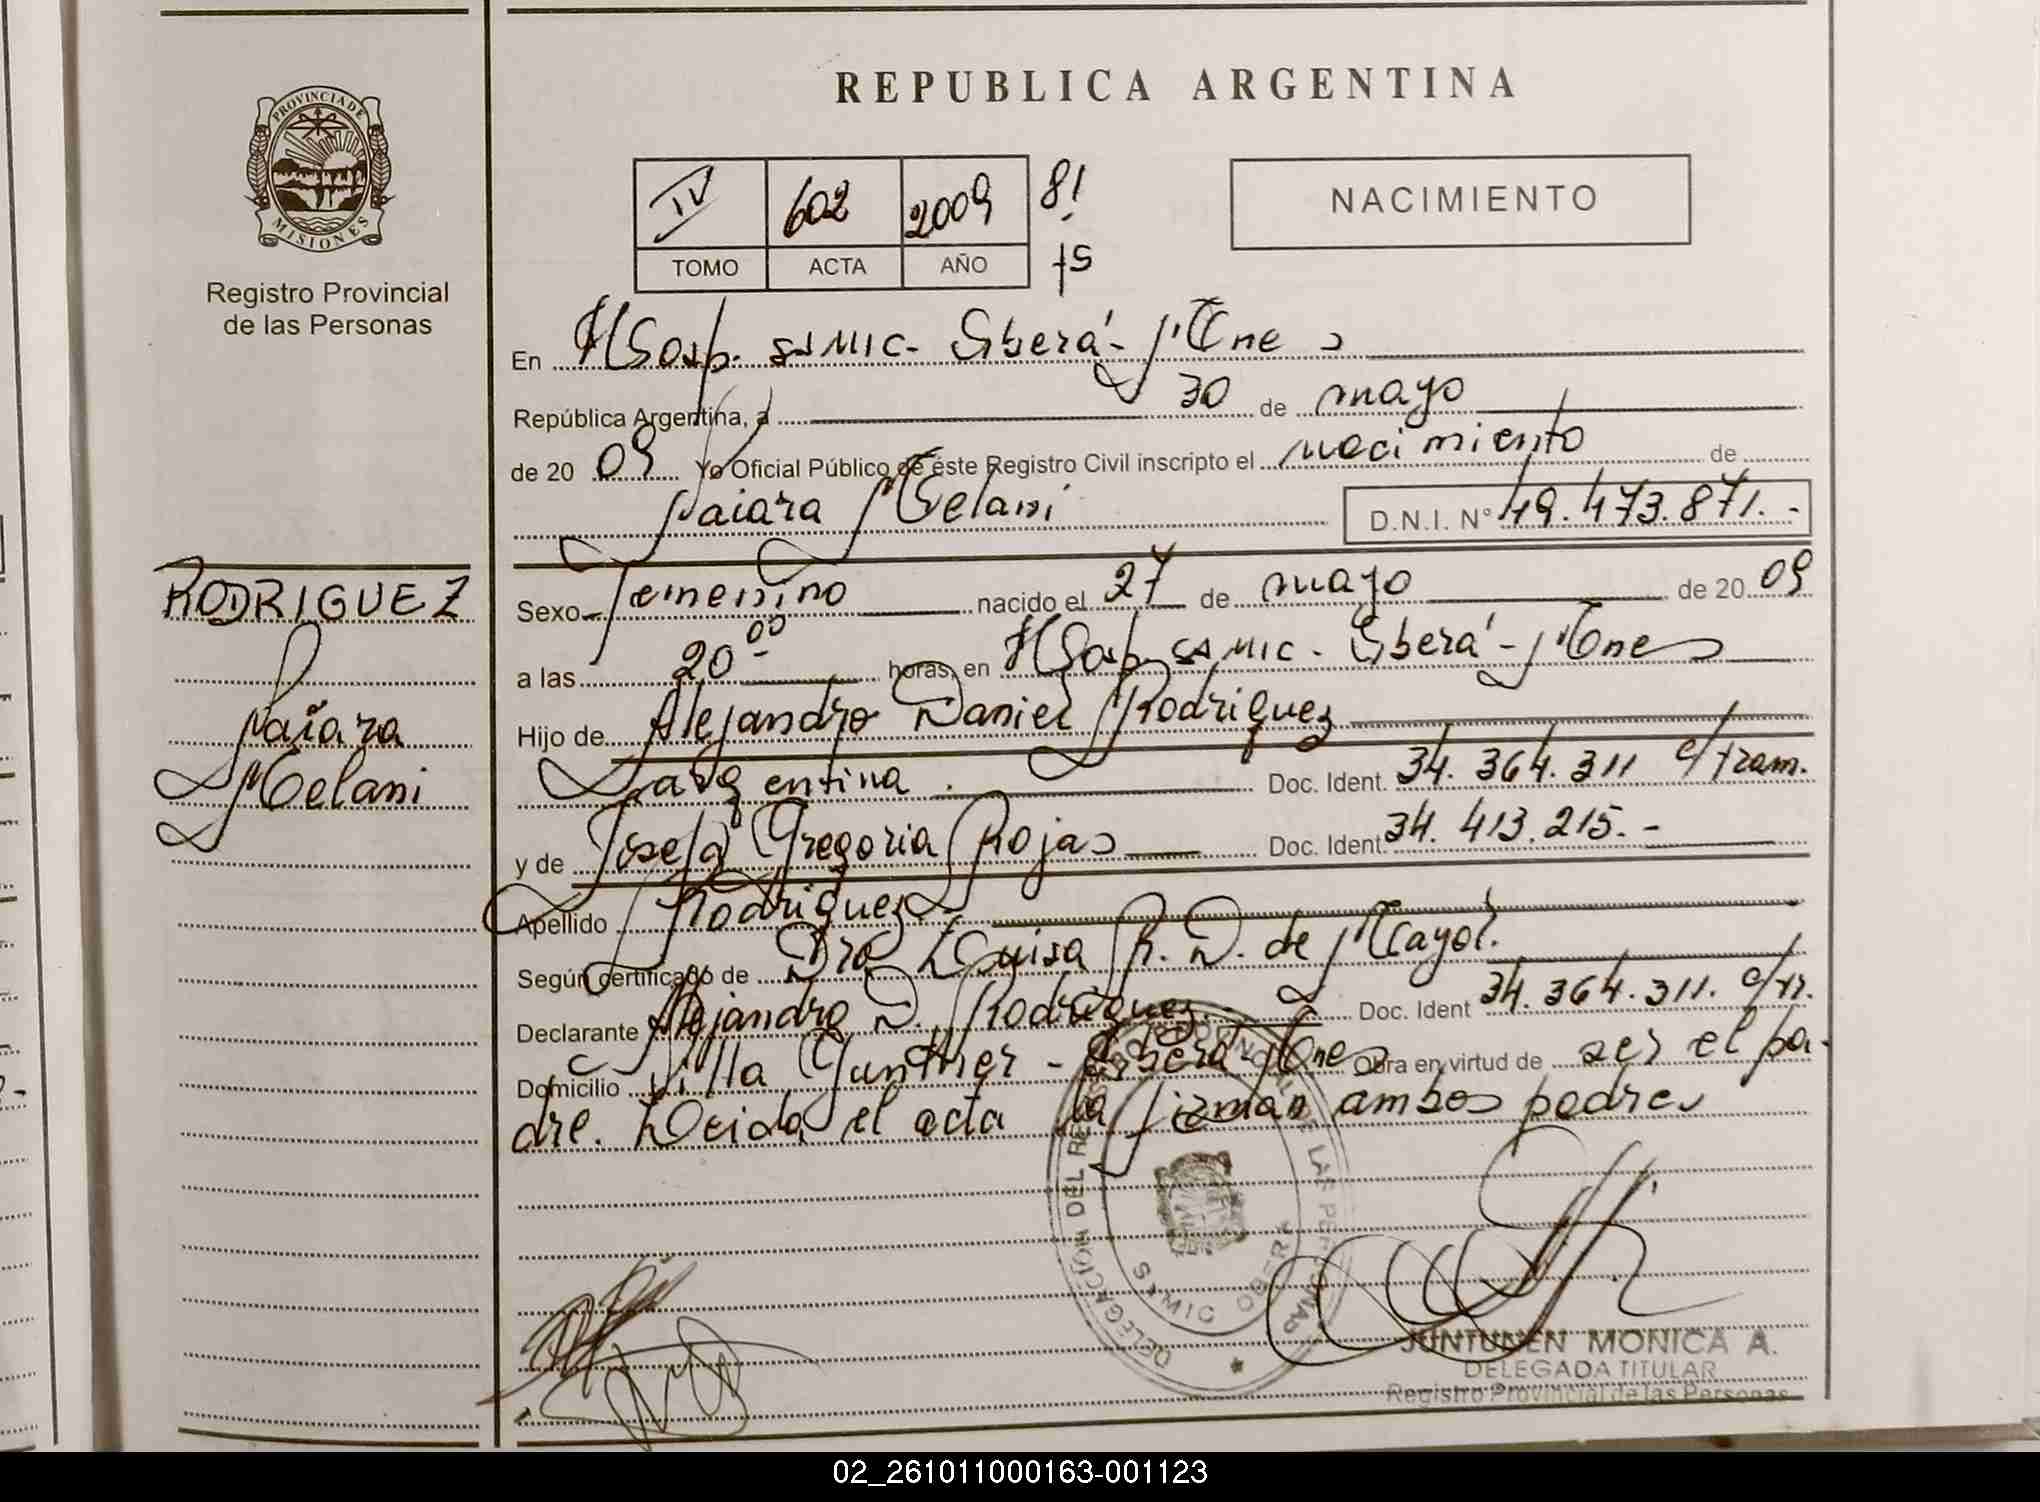 REPUBLICA ARGENTINA
PROVINCIA DE
MISIONES
Registro Provincial
de las Personas
IV 602 2009 81
TOMO ACTA AÑO
NACIMIENTO
En Hosp. SAMIC - Oberá - Mnes
República Argentina, a 30 de mayo
de 20 09 Yo Oficial Público de éste Registro Civil inscripto el nacimiento de
Naiara Melani D.N.I. N° 49.473.871.-
RODRIGUEZ
Naiara
Melani
Sexo Femenino nacido el 27 de mayo de 20 09
a las 20 00 horas, en Hosp. SAMIC - Oberá - Mnes
Hijo de Alejandro Daniel Rodriguez
argentina. Doc. Ident. 34.364.311 c/tram.
y de Josefa Gregoria Rojas Doc. Ident. 34.413.215.-
Apellido Rodriguez
Según certificado de Dra Luisa R. D. de Mayol.
Declarante Alejandro D. Rodriguez. Doc. Ident 34.364.311. c/tr.
Domicilio Villa Gunther - Oberá - Mnes Obra en virtud de ser el pa-
dre. Leida el acta la firman ambos padres
DELEGACIÓN DEL REGISTRO PROVINCIAL DE LAS PERSONAS
SAMIC OBERA
JUNTUNEN MONICA A.
DELEGADA TITULAR
Registro Provincial de las Personas
02_261011000163-001123